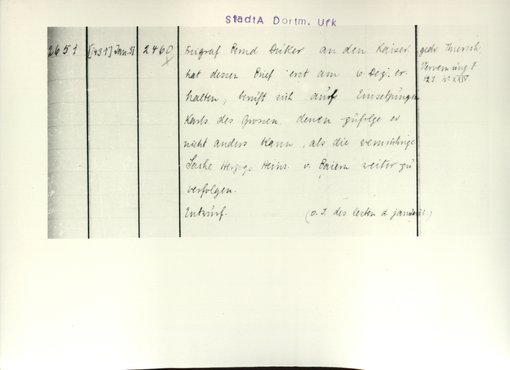 StadtA Dortm. Urk
2651 [1431] Jan. 31 2460 Freigraf Bernd Duker an den Kaiser, gedr. Thiersch
hat dessen Brief erst am 6 Dez. er
Vervemung S
halten, beruft sich auf Einsetzungen
Karls des Grossen, denen zufolge er
nicht anders kann, als die
Sache Herzogs Heinr. v. Baiern weiter zu
verfolgen.
Entwurf. (o. J. des lesten d. januarii)